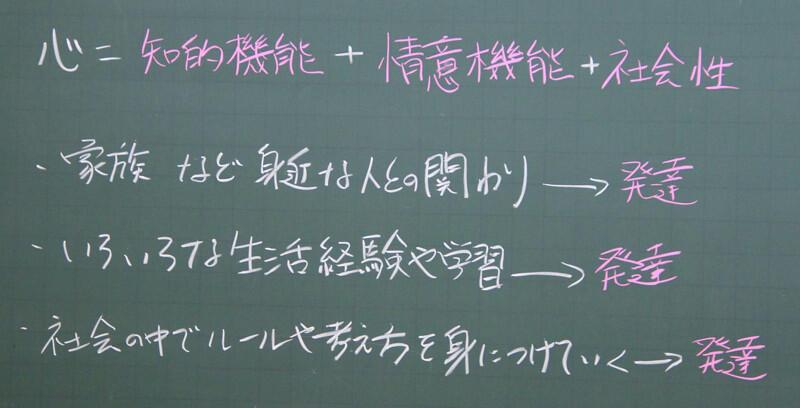 心＝知的機能＋情意機能＋社会性
・家族など身近な人との関わり→発達
・いろいろな生活経験や学習→発達
・社会の中でルールや考え方を身につけていく→発達